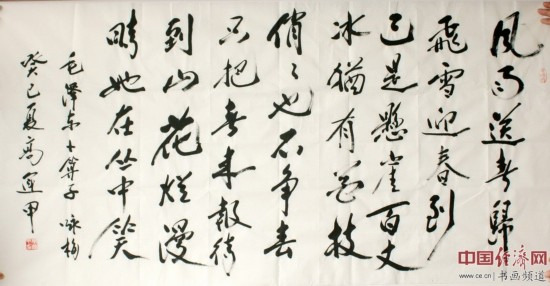 风雨送春歸
飛雪迎春到
已是懸崖百丈
冰猶有花枝
俏〻也不争春
只把春来報待
到山花烂漫
時她在丛中笑
毛泽东卜算子 咏梅
癸巳夏高运甲
中国经济网
www.ce.cn 书画频道